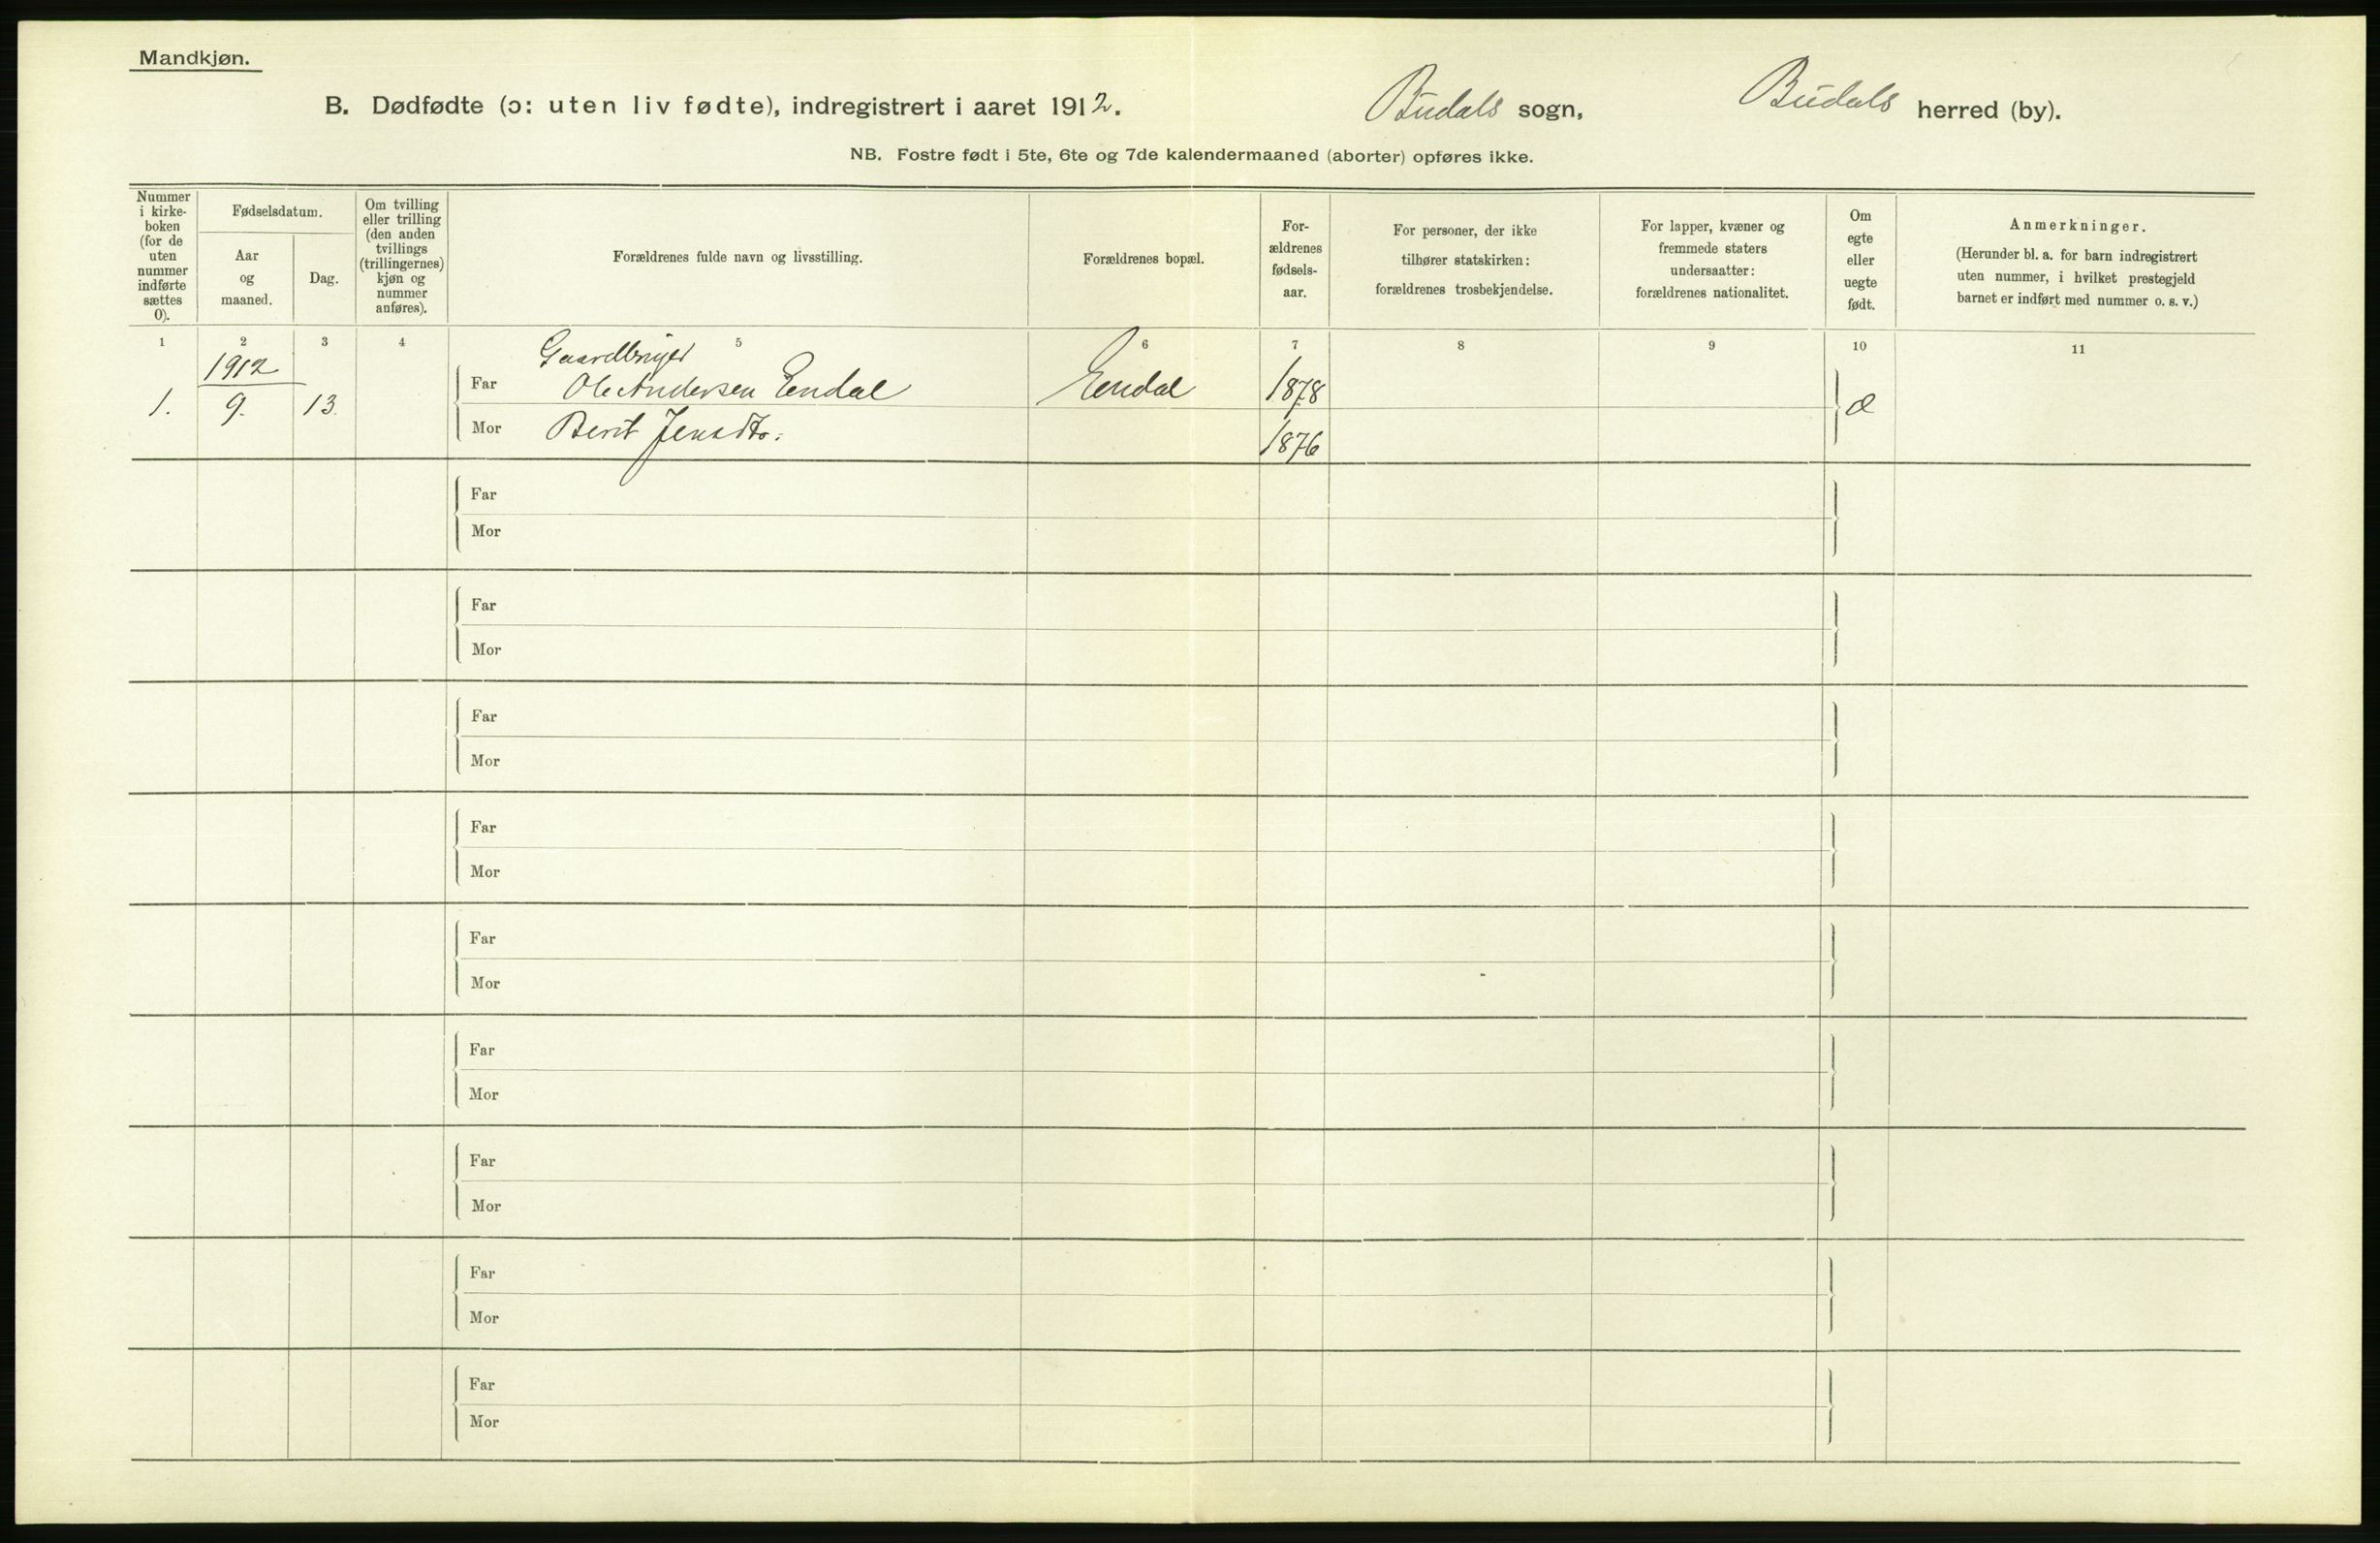 Mandkjøn.
B. Dødfødte (ɔ: uten liv fødte), indregistrert i aaret 1912. Budals sogn, Budals herred (by).
NB. Fostre født i 5te, 6te og 7de kalendermaaned (aborter) opføres ikke.
Nummer
i kirke-
boken
(for de
uten
nummer
indførte
sættes
0).
Fødselsdatum.
Aar
og
maaned.
Dag.
Om tvilling
eller trilling
(den anden
tvillings
(trillingernes)
kjøn og
nummer
anføres).
Forældrenes fulde navn og livsstilling.
Forældrenes bopæl.
For-
ældrenes
fødsels-
aar.
For personer, der ikke
tilhører statskirken:
forældrenes trosbekjendelse.
For lapper, kvæner og
fremmede staters
undersaatter:
forældrenes nationalitet.
Om
egte
eller
uegte
født.
Anmerkninger.
(Herunder bl. a. for barn indregistrert
uten nummer, i hvilket prestegjeld
barnet er indført med nummer o. s. v.)
1 2 3 4 5 6 7 8 9 10 11
1912 Gaardbruger
Far Ole Andersen Endal Endal 1878
1. 9. 13. æ
Mor Berit Jensdtr. 1876
Far
Mor
Far
Mor
Far
Mor
Far
Mor
Far
Mor
Far
Mor
Far
Mor
Far
Mor
Far
Mor